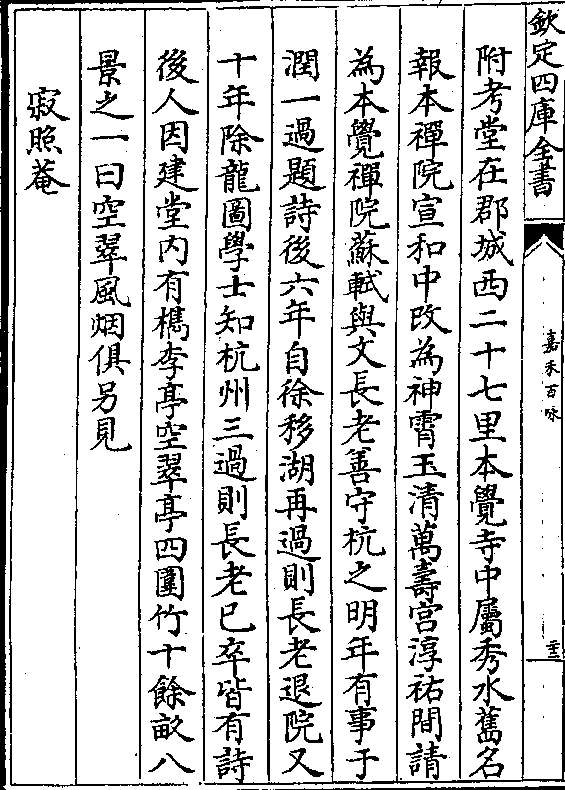 欽定四庫全書
嘉禾百咏
附考堂在郡城西二十七里本覺寺中屬秀水舊名
報本禪院宣和中改為神霄玉清萬壽宫淳祐間請
為本覺禪院蘇軾與文長老善守杭之明年有事于
潤一過題詩後六年自徐移湖再過則長老退院又
十年除龍圖學士知杭州三過則長老已卒皆有詩
後人因建堂内有檇李亭空翠亭四圍竹十餘畝八
景之一曰空翠風烟俱另見
寂照菴